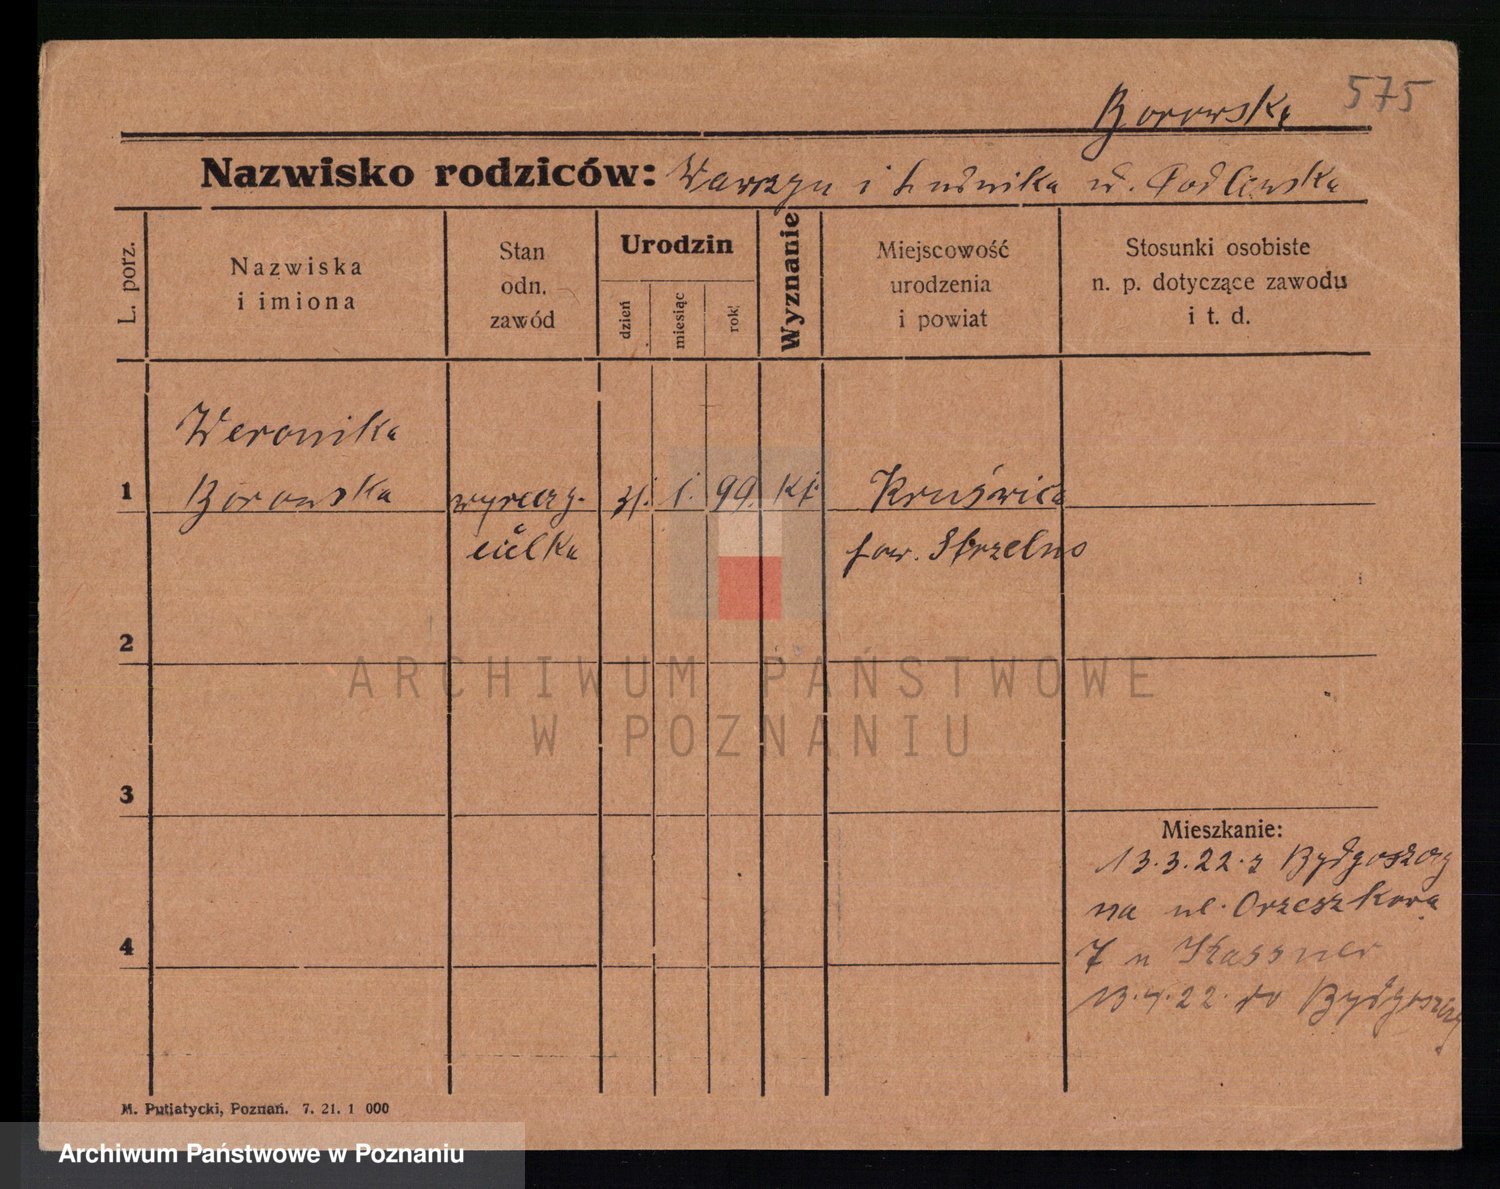 575
Borowska
Nazwisko rodziców: Wawrzyn i Ludwika u. Podlewska
L. porz.
Nazwiska
i imiona
Stan
odn.
zawód
Urodzin
dzień
miesiąc
rok
Wyznanie
Miejscowość
urodzenia
i powiat
Stosunki osobiste
n. p. dotyczące zawodu
i t. d.
Weronika
1 Borowska wyręczy- 31. 1. 99. kt. Kruświca
cielka pow. Strzelno
2
3
4
Mieszkanie:
13.3.22. z Bydgoszczy
na ul. Orzeszkowa
7 u Kassner
13.4.22. do Bydgoszczy
M. Putiatycki, Poznań. 7. 21. 1 000
ARCHIWUM PAŃSTWOWE
W POZNANIU
Archiwum Państwowe w Poznaniu